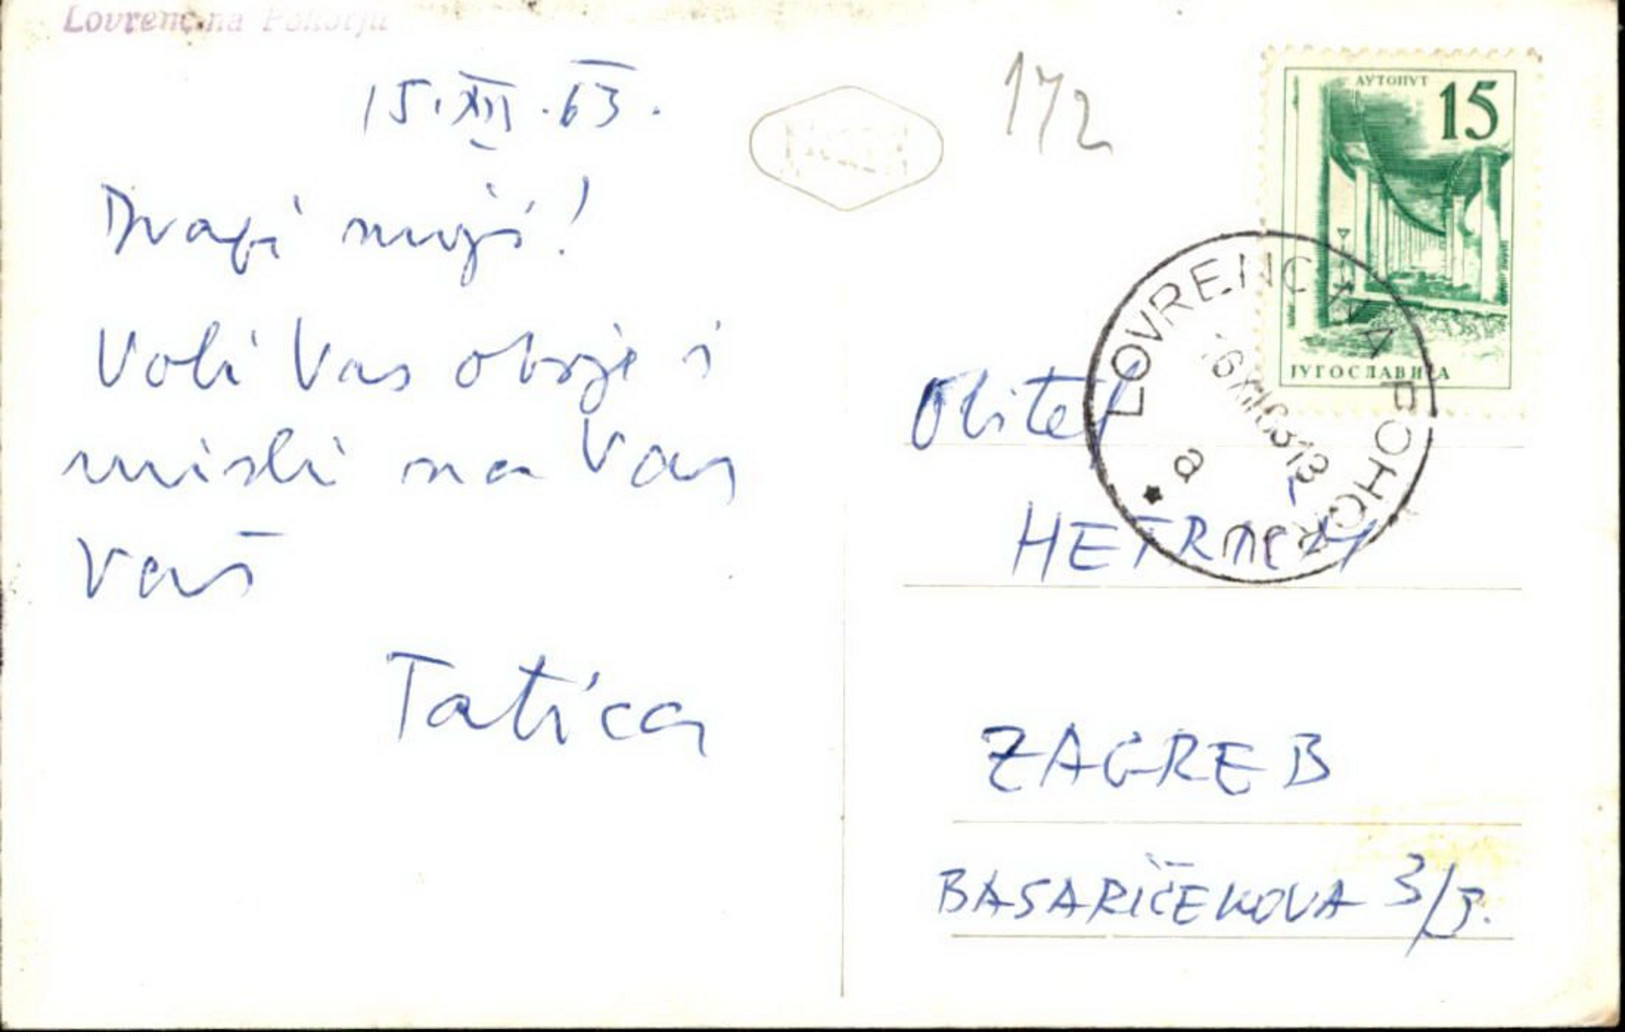 Lovrenc na Pohorju
15. XII. 63.
Dragi moji!
Voli Vas oboje i
misli na Vas
Vaš
Tatica
172
АУТОПУТ
15
ЈУГОСЛАВИЈА
LOVRENC NA POHORJU
16 XII 63 13
a
Obitelj
ZAGREB
BASARIČEKOVA 3/I.